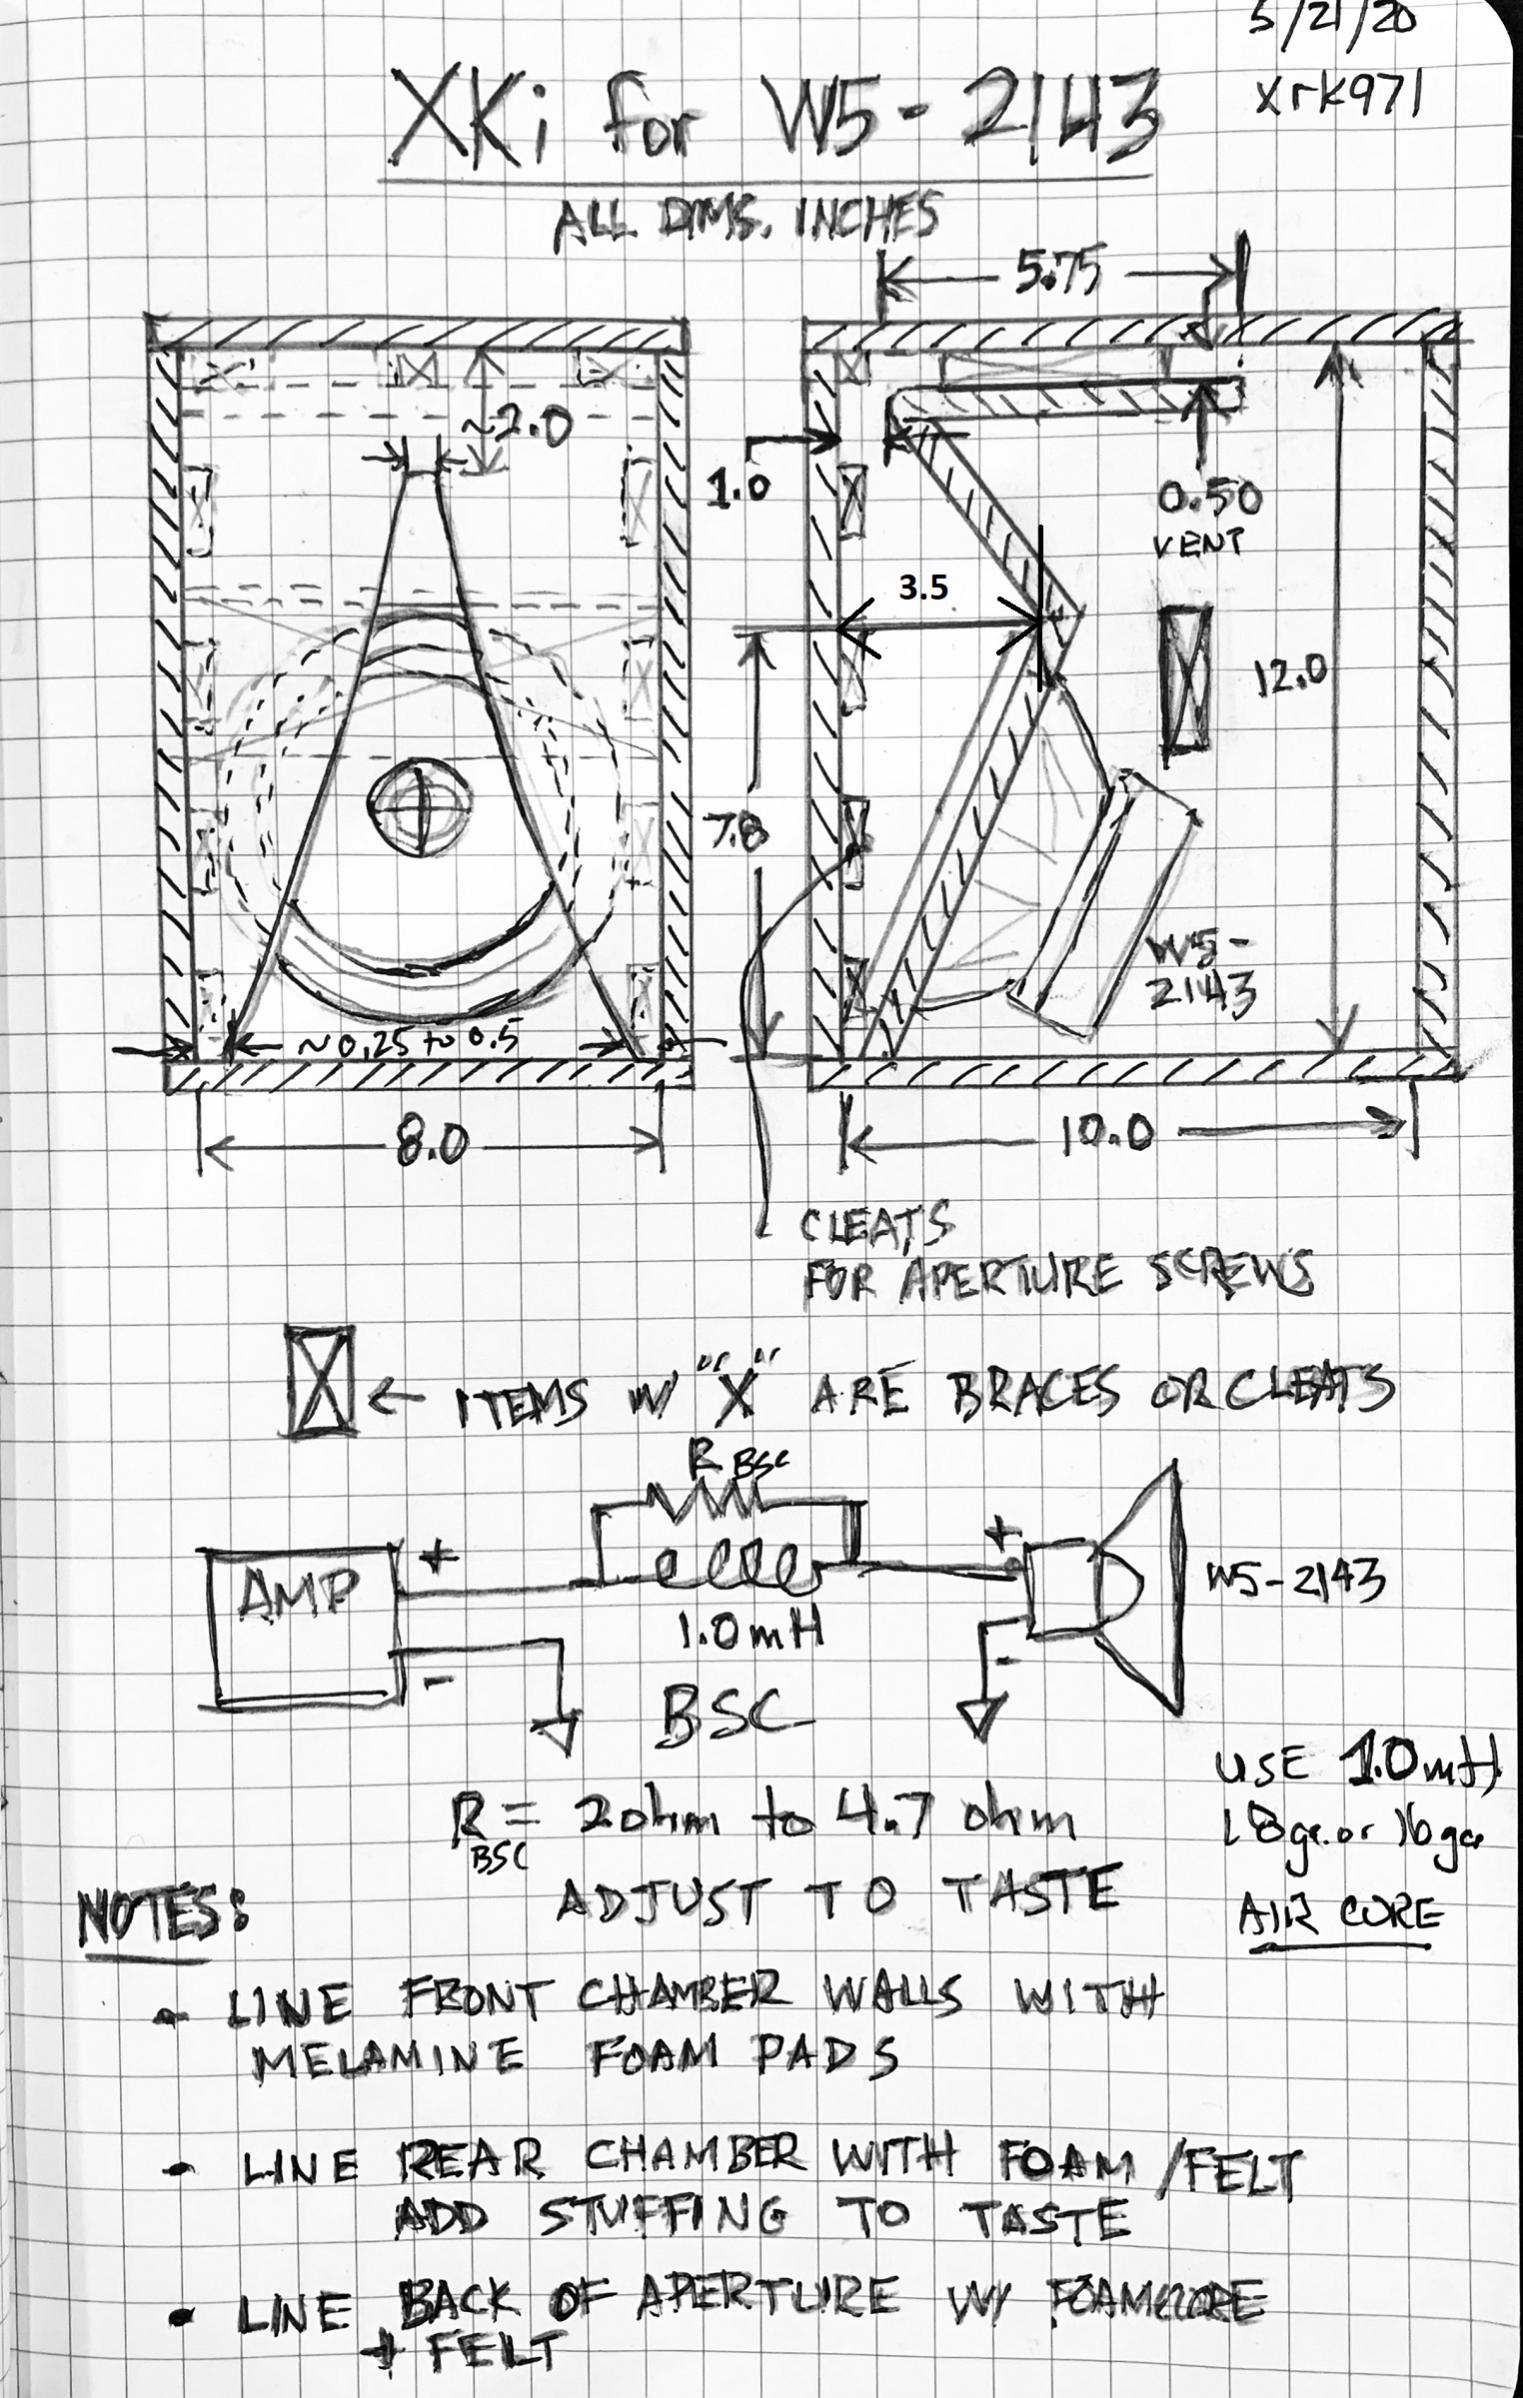 5/21/20
xrk971
XKi for W5-2143
ALL DIMS. INCHES
5.75
~2.0
1.0
0.50
VENT
3.5
12.0
7.8
W5-
2143
~0.25 to 0.5
8.0
10.0
CLEATS
FOR APERTURE SCREWS
ITEMS W/ "X" ARE BRACES OR CLEATS
R BSC
AMP
+
-
+
-
1.0mH
W5-2143
BSC
USE 1.0mH
18ga. or 16ga
AIR CORE
R BSC = 2ohm to 4.7 ohm
ADJUST TO TASTE
NOTES:
- LINE FRONT CHAMBER WALLS WITH
MELAMINE FOAM PADS
• LINE REAR CHAMBER WITH FOAM/FELT
ADD STUFFING TO TASTE
• LINE BACK OF APERTURE W/ FOAMCORE
+ FELT